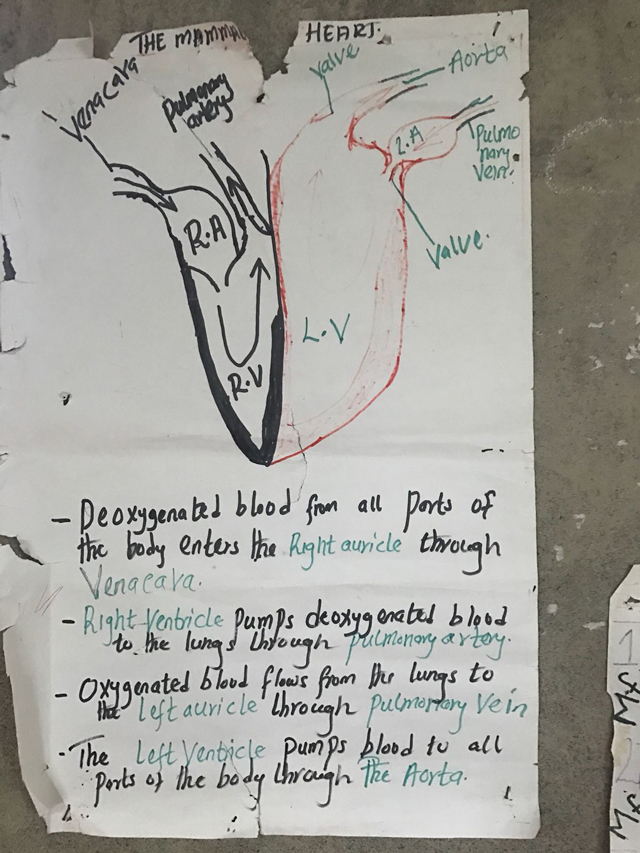 THE MAMMAL HEART.
Venacava
Pulmonary
artery
Valve
Aorta
L.A
Pulmo
nary
Vein.
Valve.
R.A
L.V
R.V
- Deoxygenated blood from all parts of
the body enters the Right auricle through
Venacava.
- Right Ventricle pumps deoxygenated blood
to the lungs through pulmonary artery.
- Oxygenated blood flows from the lungs to
the Left auricle through pulmonary Vein
- The Left Ventricle pumps blood to all
parts of the body through the Aorta.